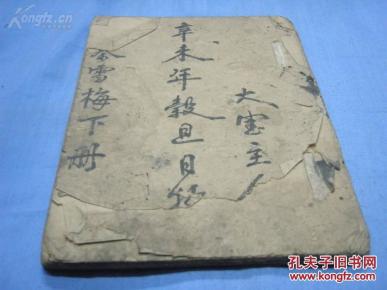 大宝主
辛未年穀旦日
金雪梅下册
Kongfz.cn
孔夫子旧书网
KONGFZ.COM